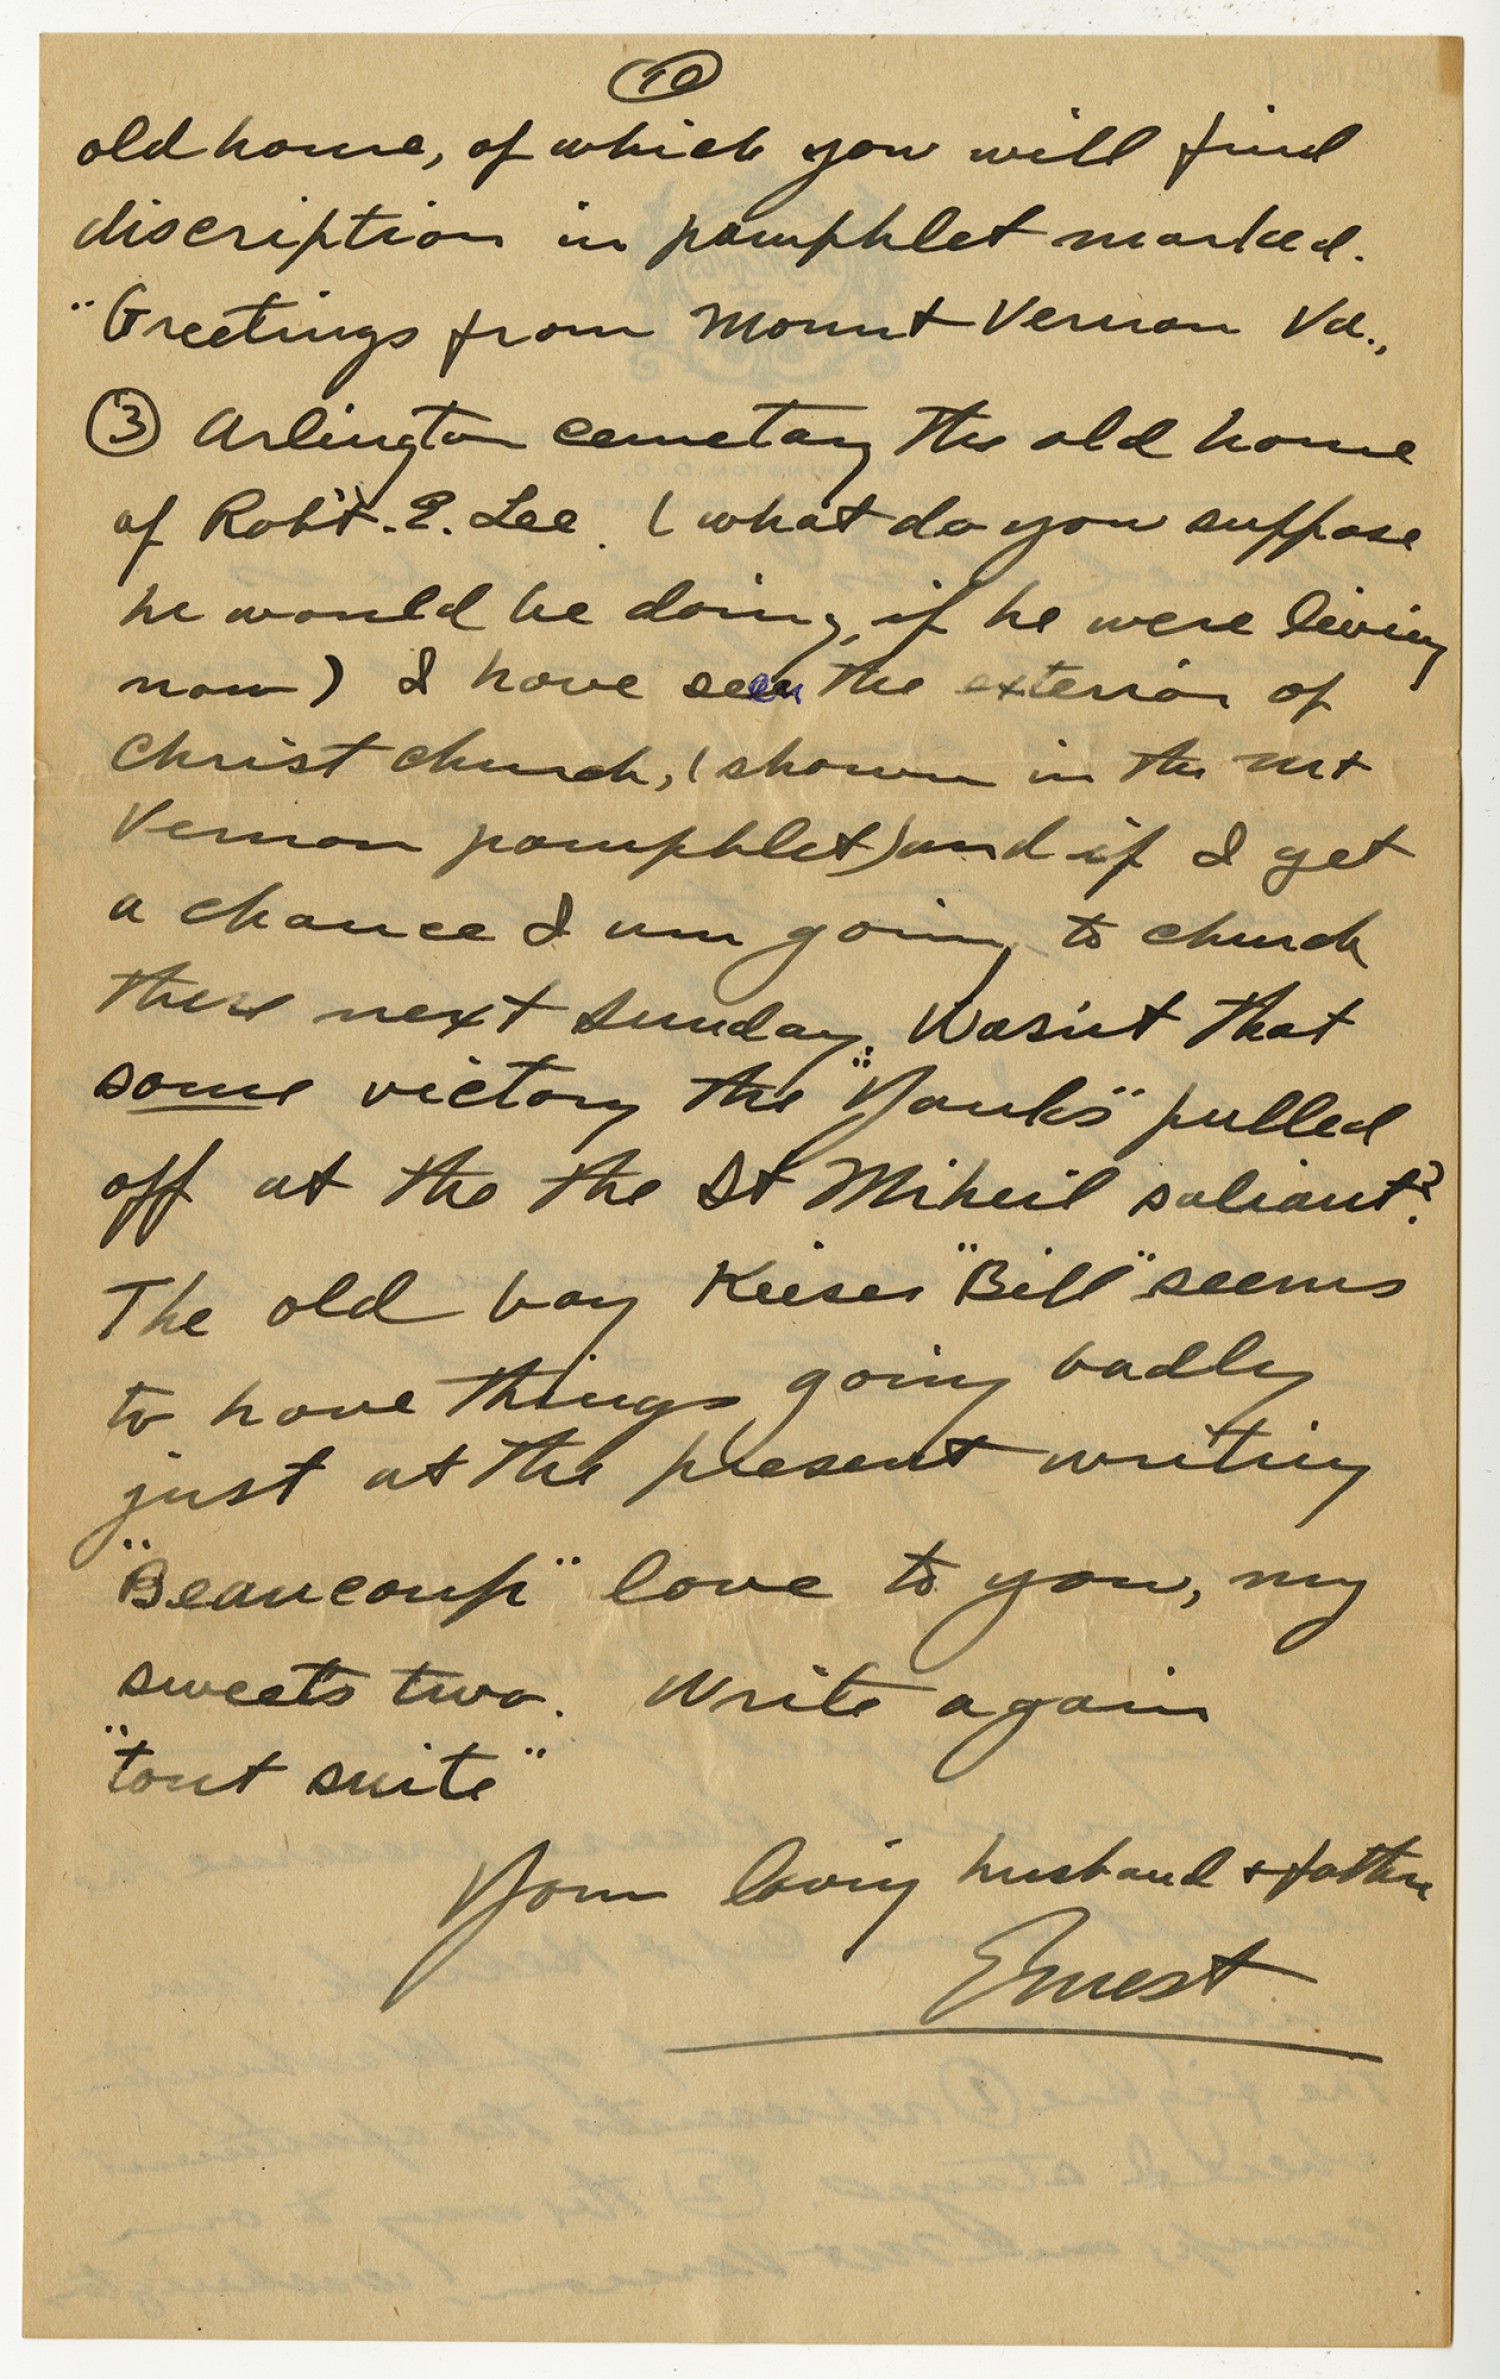 10
old home, of which you will find
discription in pamphlet marked.
"Greetings from Mount Vernon Va.,
③ Arlington cemetary the old home
of Rob't. E. Lee. (what do you suppose
he would be doing, if he were living
now) I have seen the exterior of
Christ church, (shown in the Mt
Vernon pamphlet) and if I get
a chance I am going to church
there next Sunday. Wasn't that
some victory the "Yanks" pulled
off at the the St Miheil saliant?
The old boy Keiser "Bill" seems
to have things going badly
just at the present writing
"Beaucoup" love to you, my
sweets two. Write again
"tout suite"
Your loving husband & father
Ernest